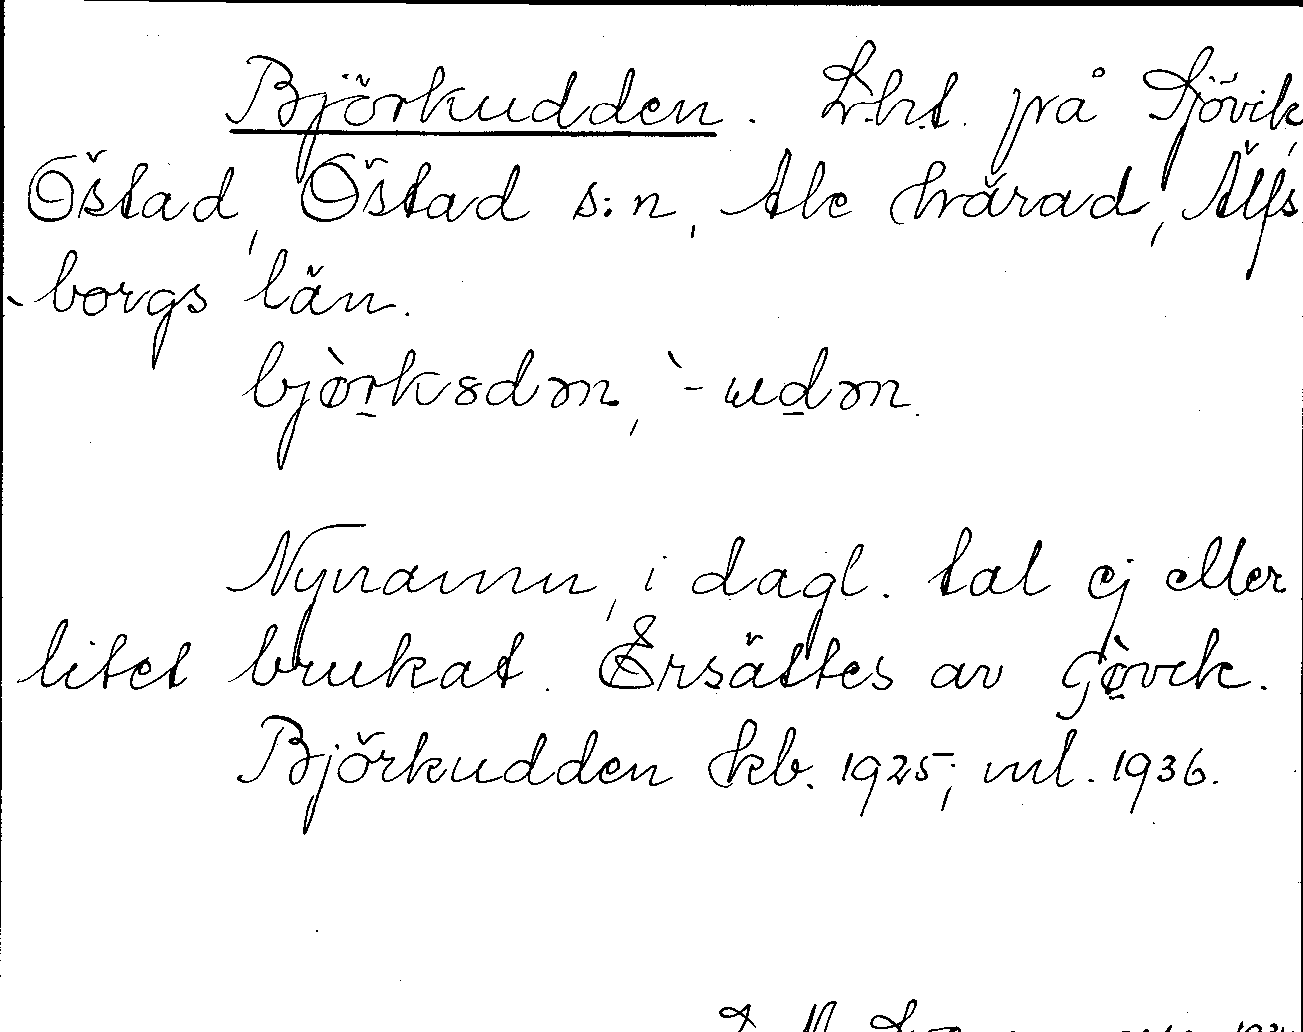 Björkudden. Lht. på Sjövik,
Östad, Östad s:n, Ale härad, Älfs
-borgs län.
bjòrksdən, `-udən.
Nynamn, i dagl. tal ej eller
litet brukat. Ersättes av
Björkudden kb. 1925; ml. 1936.